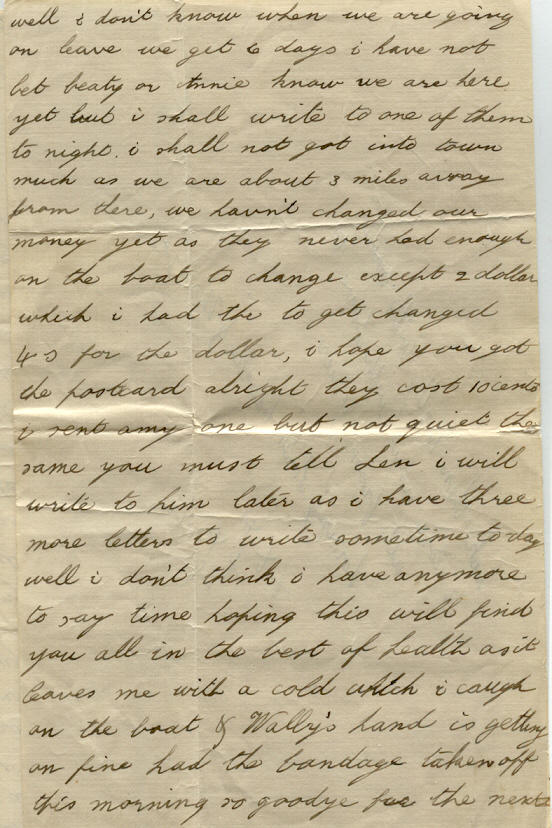 well i don't know when we are going
on leave we get 6 days i have not
let beaty or Annie know we are here
yet but i shall write to one of them
to night. i shall not got into town
much as we are about 3 miles away
from there, we havn't changed our
money yet as they never had enough
on the boat to change except 2 dollar
which i had the to get changed
4s for the dollar, i hope you got
the postcard alright they cost 10 cents
i sent amy one but not quiet the
same you must tell Len i will
write to him later as i have three
more letters to write sometime to day
well i don't think i have anymore
to say time hoping this will find
you all in the best of health as it
leaves me with a cold which i caugh
on the boat & Wally's hand is getting
on fine had the bandage taken off
this morning so goodye for the next